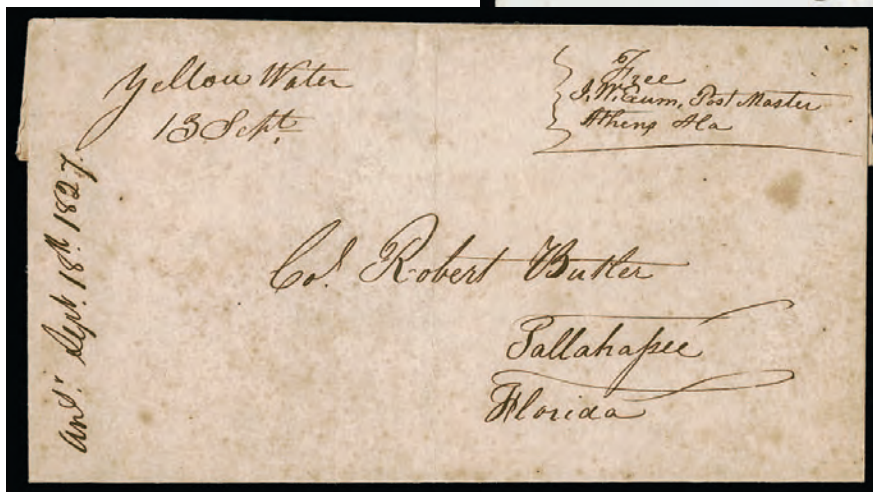 Yellow Water
13 Sept.
Free
J. W. Exum, Post Master
Athens Ala
Ansd. Sept. 18th. 1827.
Col. Robert Butler
Tallahassee
Florida